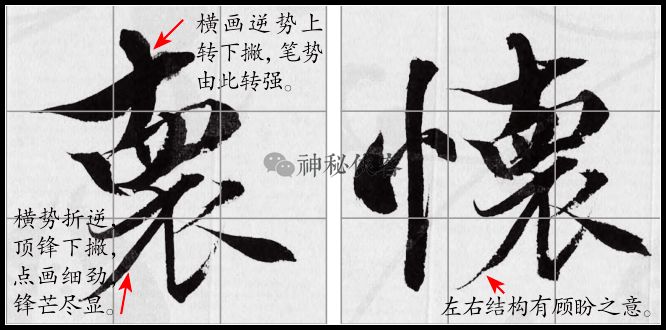 横画逆势上
转下撇，笔势
由此转强。
横势折逆，
顶锋下撇，
点画细劲，
锋芒尽显。
神秘侠客
懷
左右结构有顾盼之意。